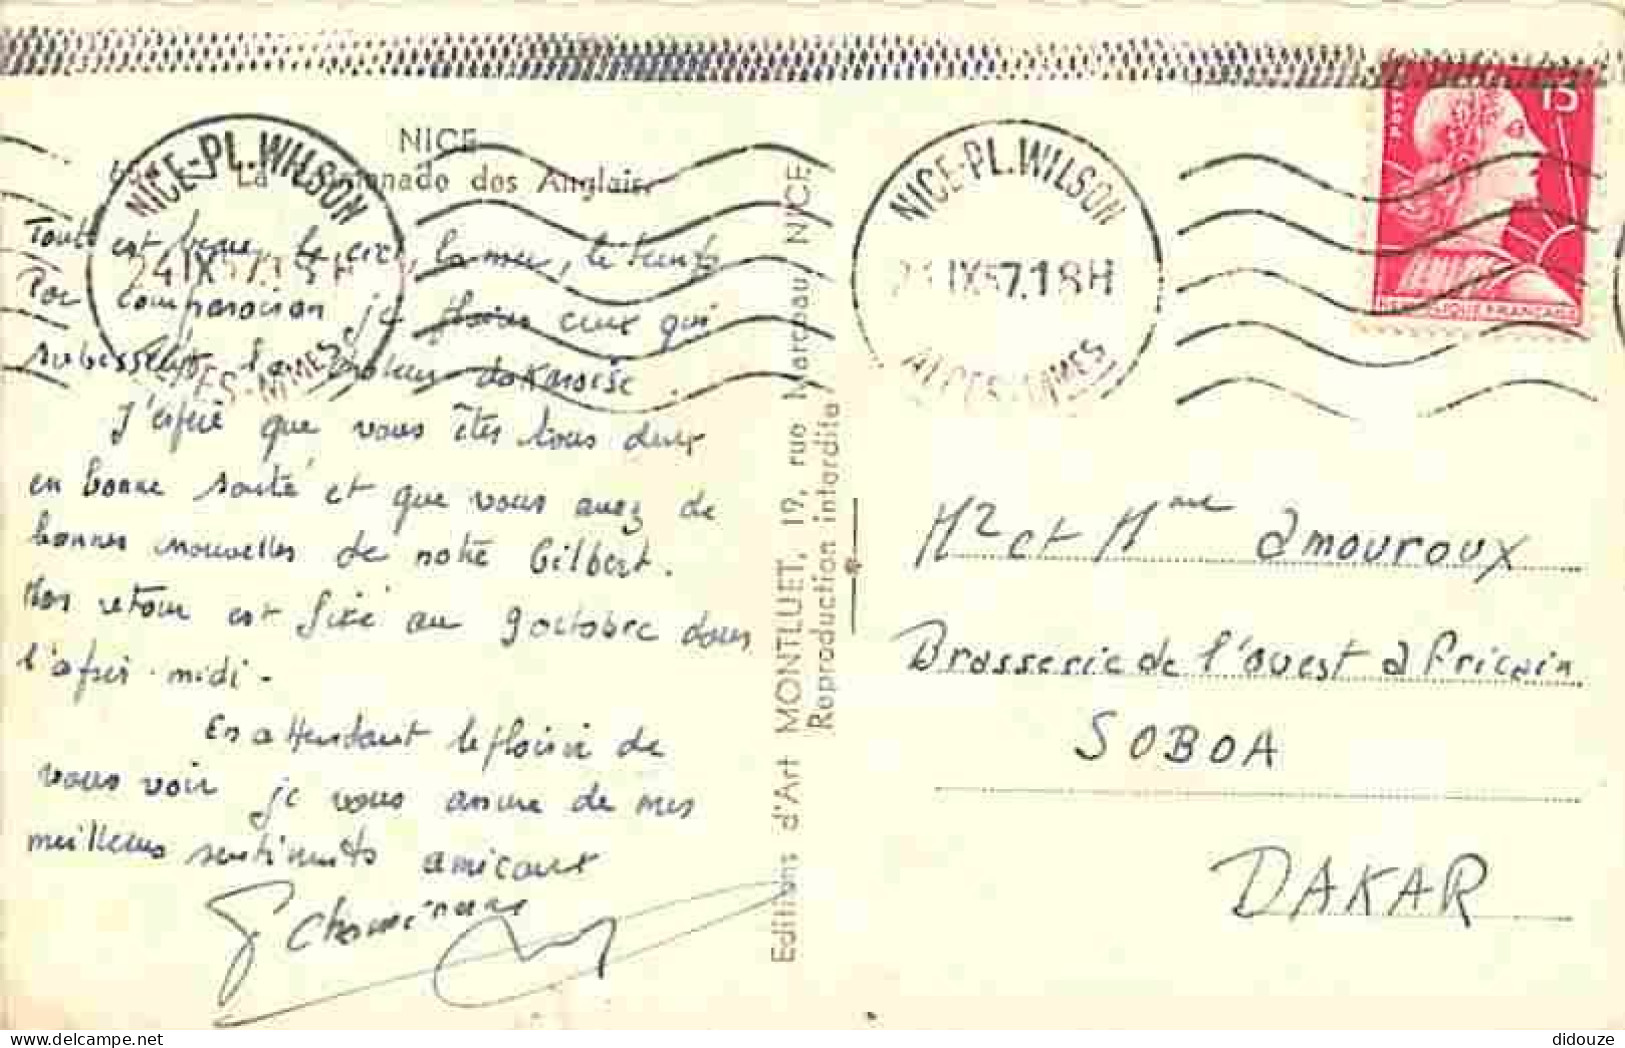 NICE
La Promenade des Anglais
NICE-PL.WILSON
24 IX 57.18H
ALPES-MMES
Tout est beau, le ciel, la mer, le temps
Par comparaison je plains ceux qui
subissent la chaleur dakaroise.
J'espère que vous êtes tous deux
en bonne santé et que vous avez de
bonnes nouvelles de notre Gilbert.
Mon retour est fixé au 9 octobre dans
l'après-midi.
En attendant le plaisir de
vous voir je vous assure de mes
meilleurs sentiments amicaux
Editions d'Art MONTLUET, 19, rue Marceau, NICE
Reproduction interdite
NICE-PL.WILSON
IX 57.18H
ALPES-MMES
POSTES
15
REPUBLIQUE FRANÇAISE
Mr et Mme Amouroux
Brasserie de l'ouest africain
SOBOA
DAKAR
didouze
delcampe.net